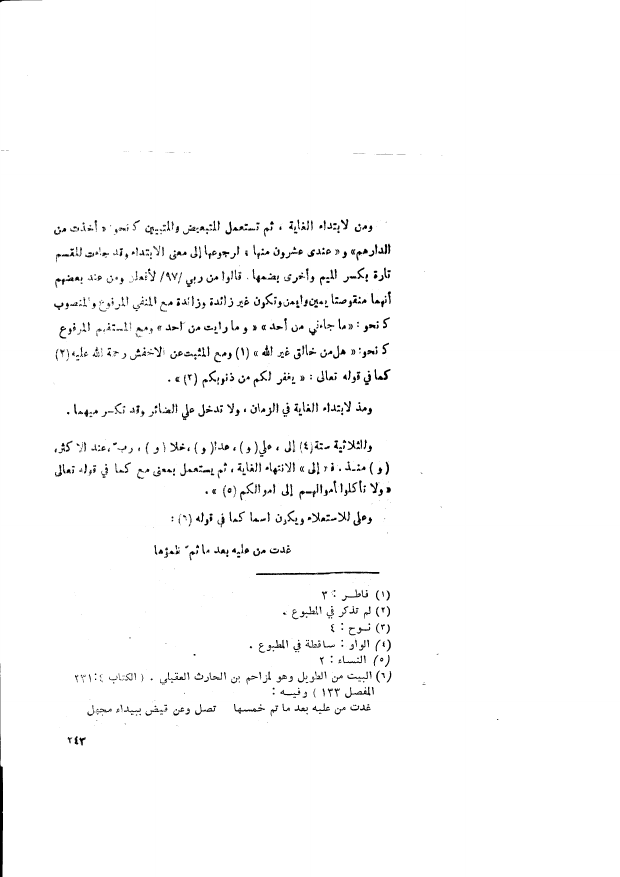 ومن لابتداء الغاية ، ثم تستعمل للتبعيض والتبيين كنحو: « أخذت من
الدارهم» و « عندى عشرون منها » ارجوعها إلى معنى الابتداء وقد جاءت للقسم
تارة بكسر الميم وأخرى بضمها . قالوا من ربي /٩٧/ لأفعلن ومن عند بعضهم
أنهما منقوصتا يمين وايمن وتكون غير زائدة وزائدة مع المنفي المرفوع والمنصوب
كنحو : «ما جاءني من أحد» « وما رايت من احد» ومع المستفهم المرفوع
كنحو: « هل من خالق غير الله » (١) ومع المثبت عن الاخفش رحمة الله عليه (٢)
كما في قوله تعالى : « يغفر لكم من ذنوبكم (٣) » .
ومذ لابتداء الغاية في الزمان ، ولا تدخل علي الضمائر وقد تكسر ميهما .
والثلاثية ستة (٤) إلى ، علي (و) ، عدا (و) ، خلا (و) ، ربّ ، عند الاكثر،
(و) منذ . فـ « إلى » الانتهاء الغاية ، ثم يستعمل بمعنى مع كما في قوله تعالى
«ولا تأكلوا أموالهم إلى اموالكم (٥) » .
وعلى للاستعلاء ويكون اسما كما في قوله (٦) :
غدت من عليه بعد ما ثمّ ظمؤها
(١) فاطر : ٣
(٢) لم تذكر في المطبوع .
(٣) نوح : ٤
(٤) الواو : ساقطة في المطبوع .
(٥) النساء : ٢
(٦) البيت من الطويل وهو لمزاحم بن الحارث العقيلي . ( الكتاب ٤ : ٢٣١
المفصل ١٣٣ ) وفيه :
غدت من عليه بعد ما تم خمسها تصل وعن قيض ببيداء مجهل
٢٤٣